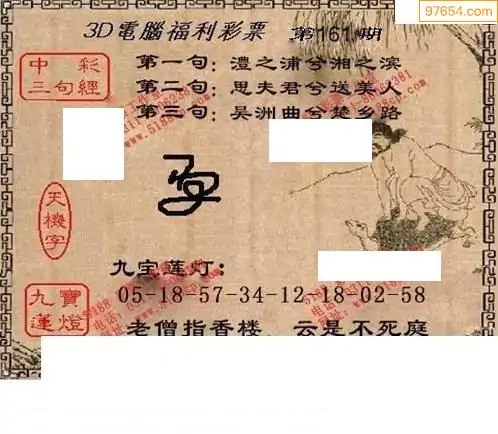 97654.com
3D電腦福利彩票 第161期
中彩
三句經
第一句：澧之浦兮湘之滨
第二句：思夫君兮送美人
第三句：吴洲曲兮楚乡路
天機字
九宝莲灯：
九寶蓮燈
05-18-57-34-12 18-02-58
老僧指香楼、云是不死庭